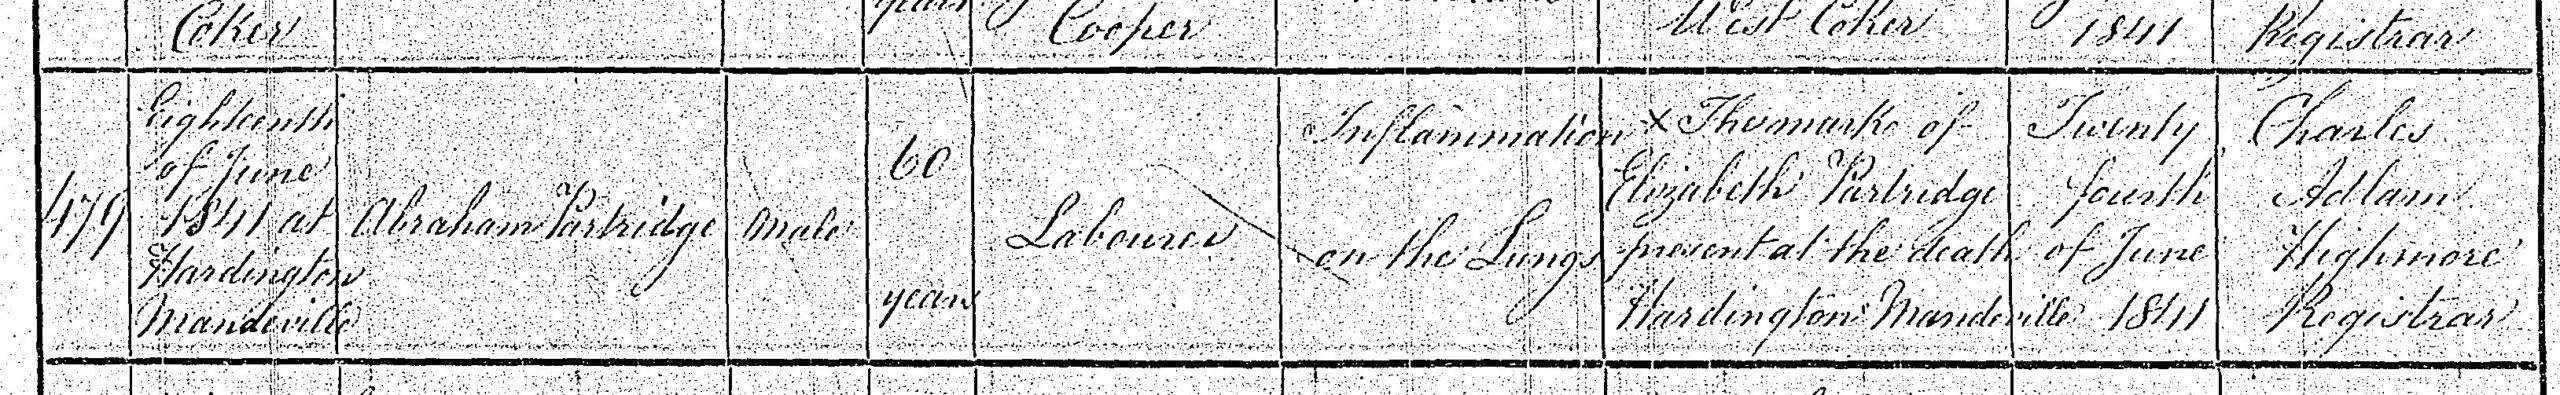 Coker years Cooper West Coker 1841 Registrar
479
Eighteenth
of June
1841 at
Hardington
Mandeville
Abraham Partridge
Male
60
years
Labourer
Inflammation
on the Lungs
X The mark of
Elizabeth Partridge
present at the death
Hardington Mandeville
Twenty
fourth
of June
1841
Charles
Adlam
Highmore
Registrar